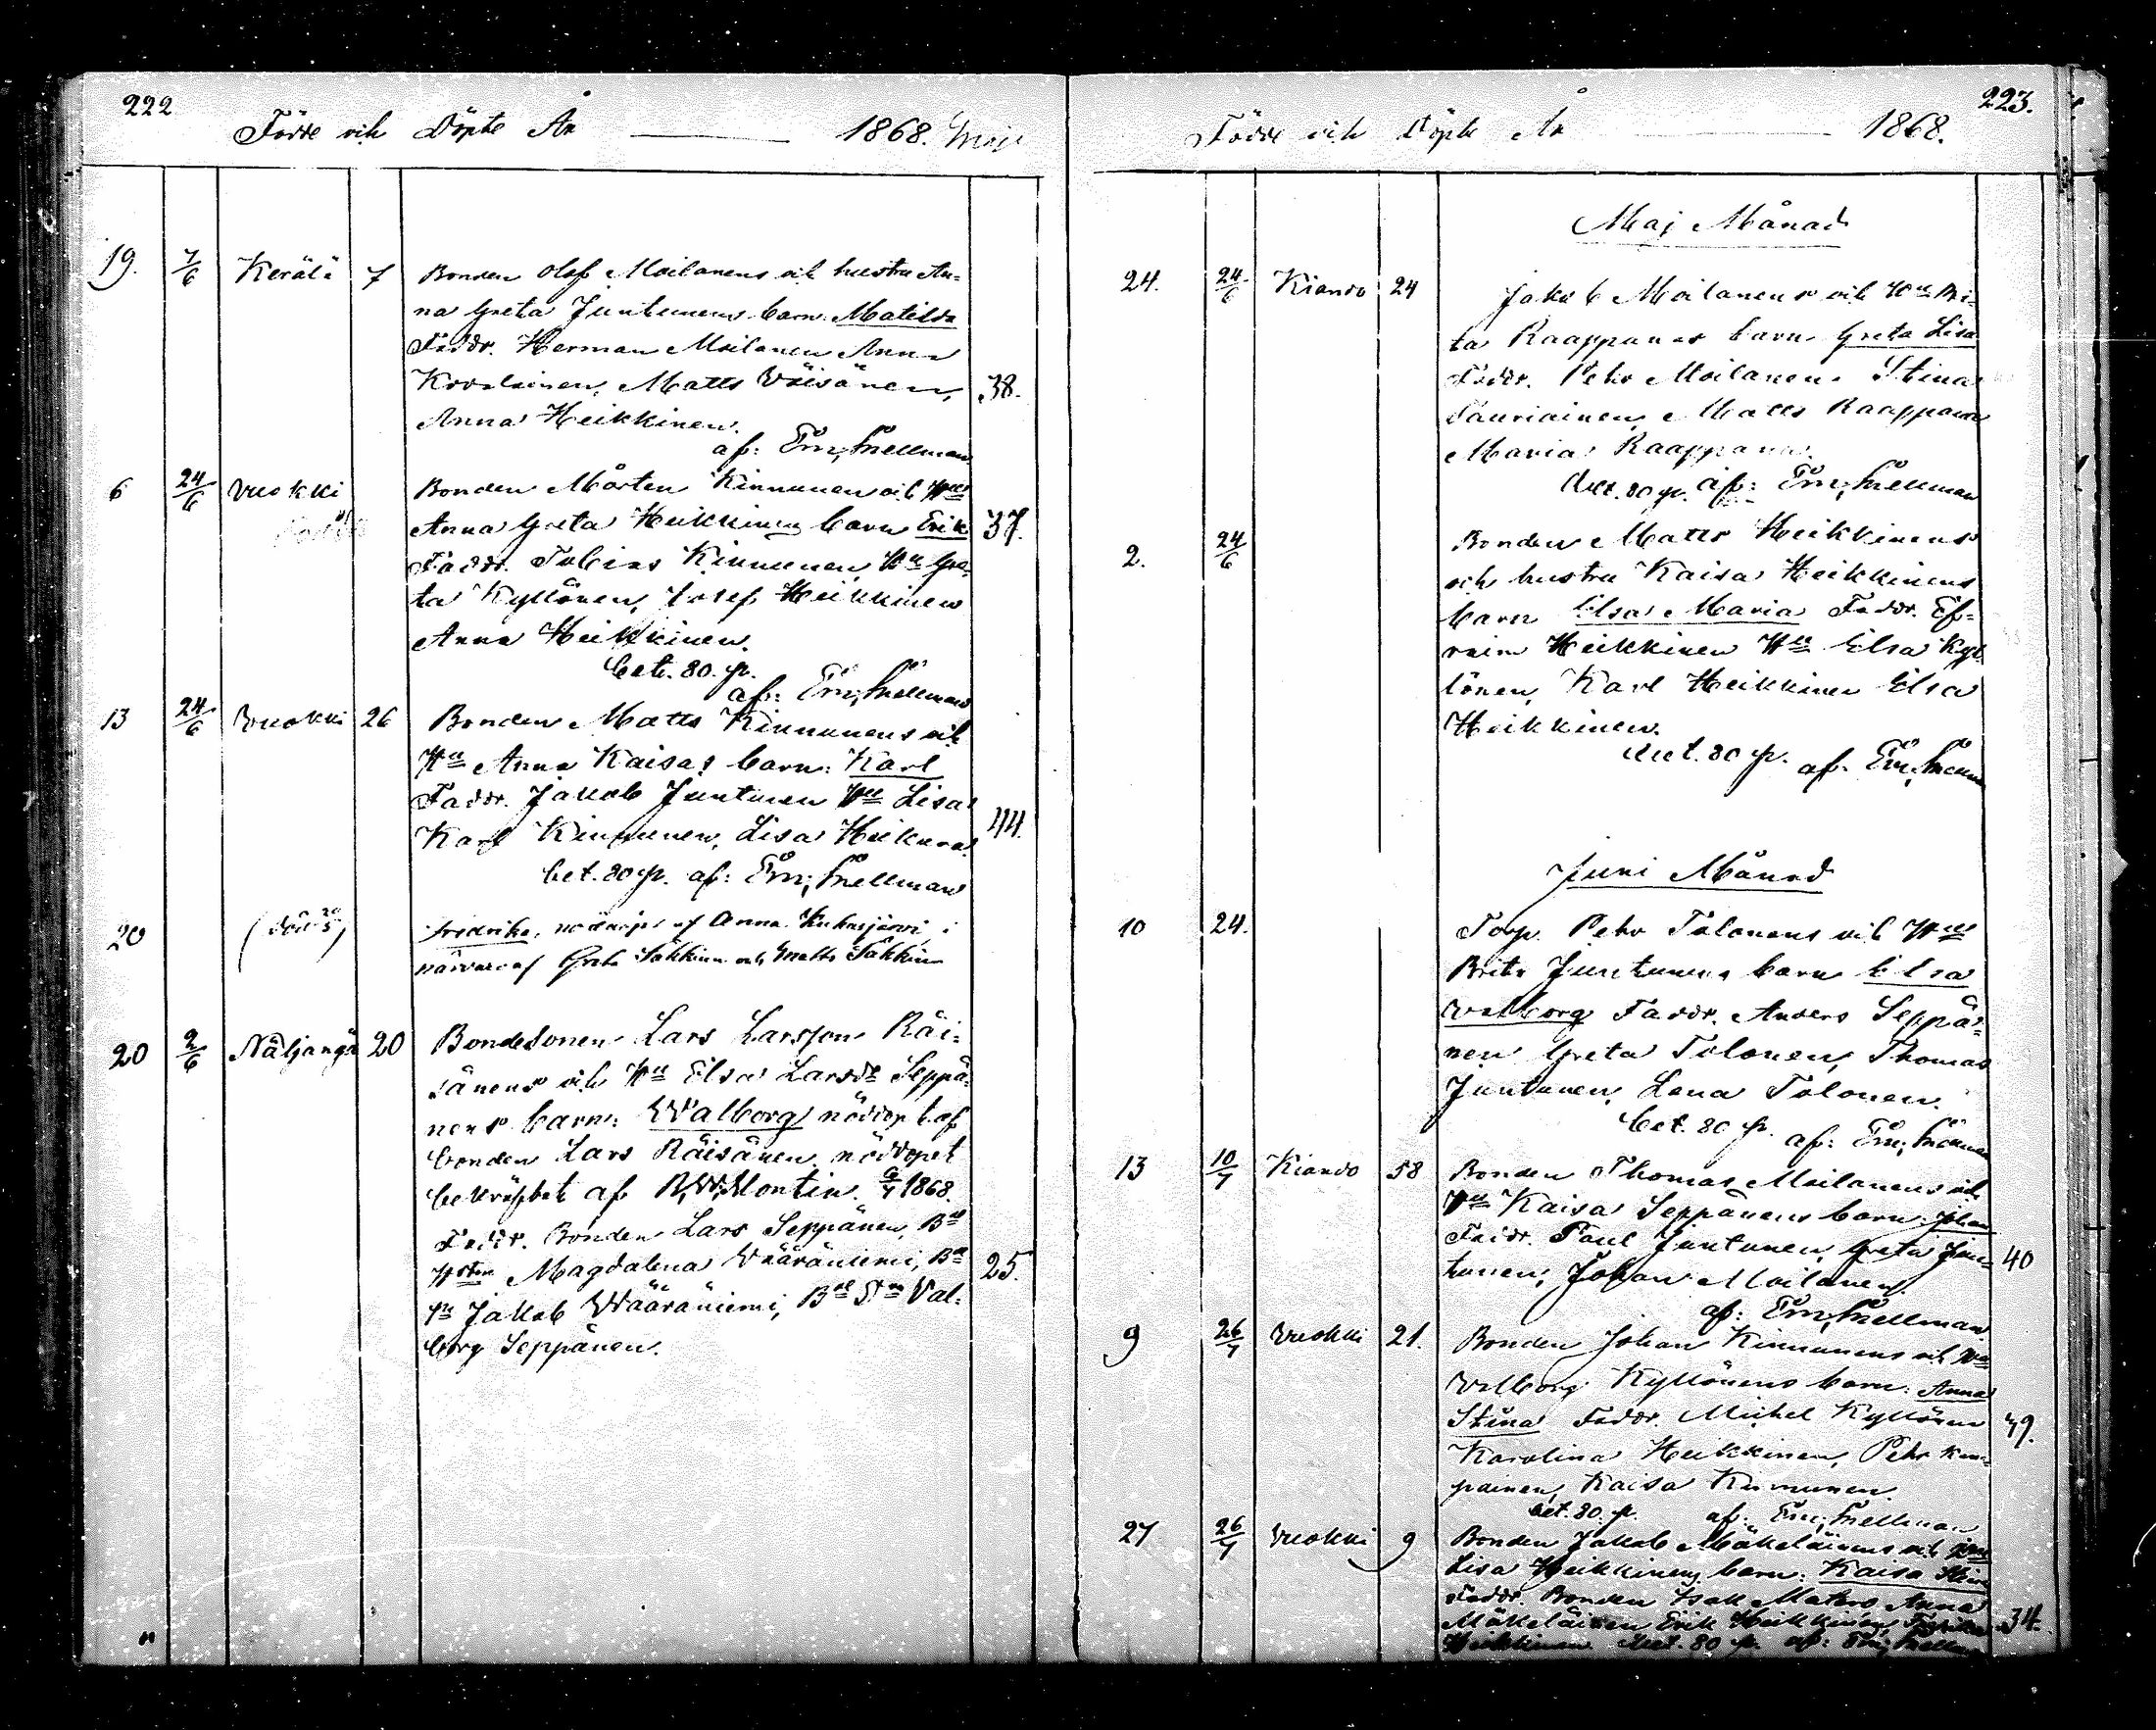 222
Födde och Döpte År 1868. Maji
19. 7/6 Kerälä 7 Bonden Olof Moilanens och hustru An-
na Greta Juntunens barn: Matilda
Faddr. Herman Moilanen Anna
Kovalainen, Matts Väisänen, 38.
Anna Heikkinen.
af: Em; Snellman
6 24/6 Vuokki Bonden Mårten Kinnunen och Hu
Anna Greta Heikkinens barn Erik 37.
Faddr. Tobias Kinnunen, Hu Gre-
ta Kyllönen, Josef Heikkinen
Anna Heikkinen.
bet. 80. p.
af: Em; Snellman
13 24/6 Vuokki 26 Bonden Matts Kinnunens och
Hu Anna Kaisas barn: Karl
Faddr. Jakob Juntunen Hu Lisa
Karl Kinnunen, Lisa Heikura. 44.
bet. 80 p. af: Em; Snellman
20 Fredrika, nöddöpt af Anna
närvaro af Greta Säkkinen och Matts Säkkinen
20 2/6 Näljängä 20 Bondesonen Lars Larsson Räi-
sänens och Hu Elsa Larsdr Seppä-
nens barn: Walborg nöddöpt af
bonden Lars Räisänen, nöddopet
bekräftat af 1868.
Faddr. Bonden Lars Seppänen, Bd
Hstru Magdalena Wääräniemi, Bd 25.
Sn Jakob Wääräniemi, Bd Dr Val-
borg Seppänen.
223.
Födde och Döpte År 1868.
Maj Månad
24. 24/6 Kiando 24 Jakob Moilanens och Hu Bri-
ta Raappanas barn Greta Lisa
Faddr. Pehr Moilanen Stina
Tauriainen, Matts Raappana
Maria Raappana.
bet. 80 p. af: Em; Snellman
2. 24/6 Bonden Matts Heikkinens
och hustru Kaisa Heikkinens
barn Elsa Maria Faddr. Ef-
raim Heikkinen Hu Elsa Kyl-
lönen, Karl Heikkinen Elsa
Heikkinen.
bet. 80 p. af: Em; Snellman
Juni Månad
10 24. Torp. Pehr Tolonens och Hu
Brita Juntunens barn Elsa
Walborg Faddr. Anders Seppä-
nen Greta Tolonen, Thomas
Juntunen, Lena Tolonen.
bet. 80 p. af: Em; Snellman
13 10/7 Kiando 58 Bonden Thomas Moilanens och
Hu Kaisa Seppänens barn: Johan
Faddr. Paul Juntunen, Greta Jun- 40
tunen, Johan Moilanen.
af: Em; Snellman
9 26/7 Vuokki 21. Bonden Johan Kinnunens och Hu
Valborg Kyllönens barn: Anna
Stina Faddr. Michel Kyllönen 49.
Karolina Heikkinen, Pehr Kem-
painen, Kaisa Kinnunen.
bet. 80. p. af: Em; Snellman
27 26/7 Vuokki 9 Bonden Jakob Mäkeläinens och Hu
Lisa Heikkinens barn: Kaisa Stina
Faddr. Bonden Isak Matero Anna
Mäkeläinen Erik Heikkinen 34.
Heikkinen bet. 80 p. af: Em; Snellman